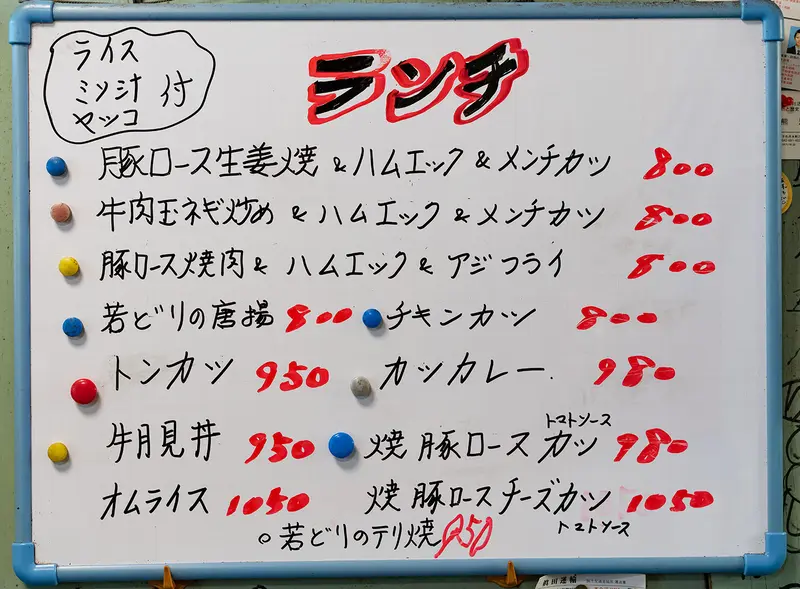 ライス
ミソ汁 付
ヤッコ
ランチ
豚ロース生姜焼 & ハムエッグ & メンチカツ 800
牛肉玉ネギ炒め & ハムエッグ & メンチカツ 800
豚ロース焼肉 & ハムエッグ & アジフライ 800
若どりの唐揚 800 チキンカツ 800
トンカツ 950 カツカレー 980
牛月見丼 950 焼豚ロースカツ 980
トマトソース
オムライス 1050 焼豚ロースチーズカツ 1050
トマトソース
○若どりのテリ焼 950